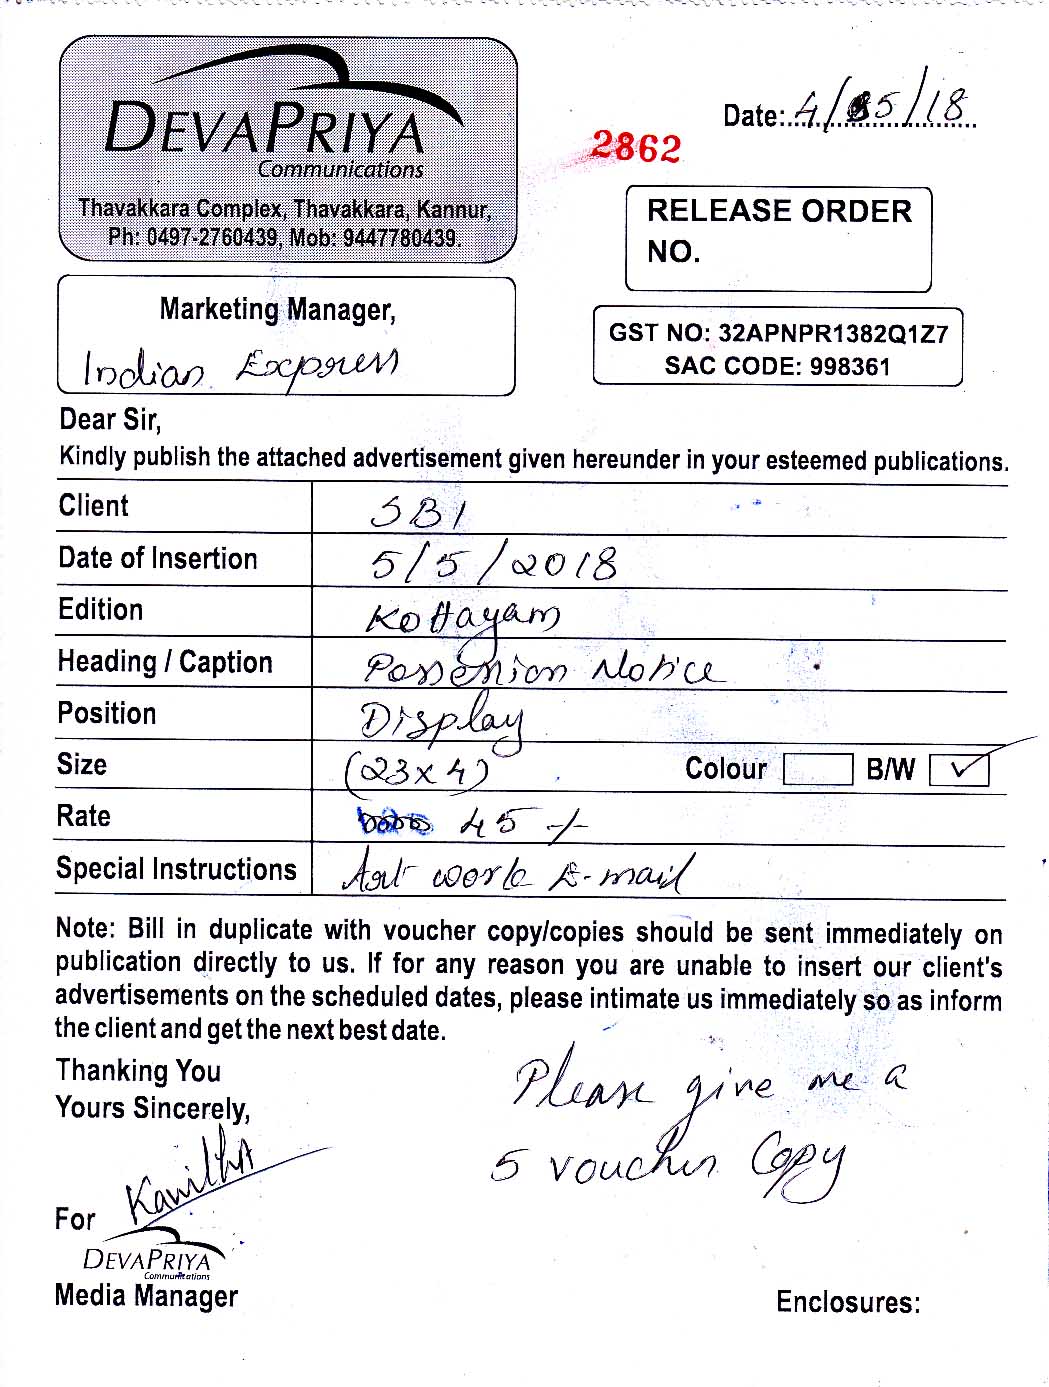 DEVAPRIYA
Communications
Thavakkara Complex, Thavakkara, Kannur,
Ph: 0497-2760439, Mob: 9447780439.
Date: 4/05/18
2862
RELEASE ORDER
NO.
Marketing Manager,
Indian Express
GST NO: 32APNPR1382Q1Z7
SAC CODE: 998361
Dear Sir,
Kindly publish the attached advertisement given hereunder in your esteemed publications.
Client SBI
Date of Insertion 5/5/2018
Edition Kottayam
Heading / Caption Possession Notice
Position Display
Size (23x4) Colour B/W ✓
Rate 45-/-
Special Instructions Art work E-mail
Note: Bill in duplicate with voucher copy/copies should be sent immediately on
publication directly to us. If for any reason you are unable to insert our client's
advertisements on the scheduled dates, please intimate us immediately so as inform
the client and get the next best date.
Thanking You
Yours Sincerely,
Please give me a
5 voucher Copy
For
DEVAPRIYA
Communications
Media Manager
Enclosures: